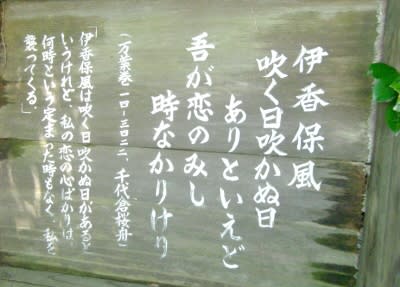 伊香保風
吹く日吹かぬ日
ありといえど
吾が恋のみし
時なかりけり
(万葉巻一四-三四二二、千代倉桜舟)
「伊香保風は吹く日吹かぬ日があると
いうけれど、私の恋の心ばかりは、
何時という定まった時もなく、私を
襲ってくる。」